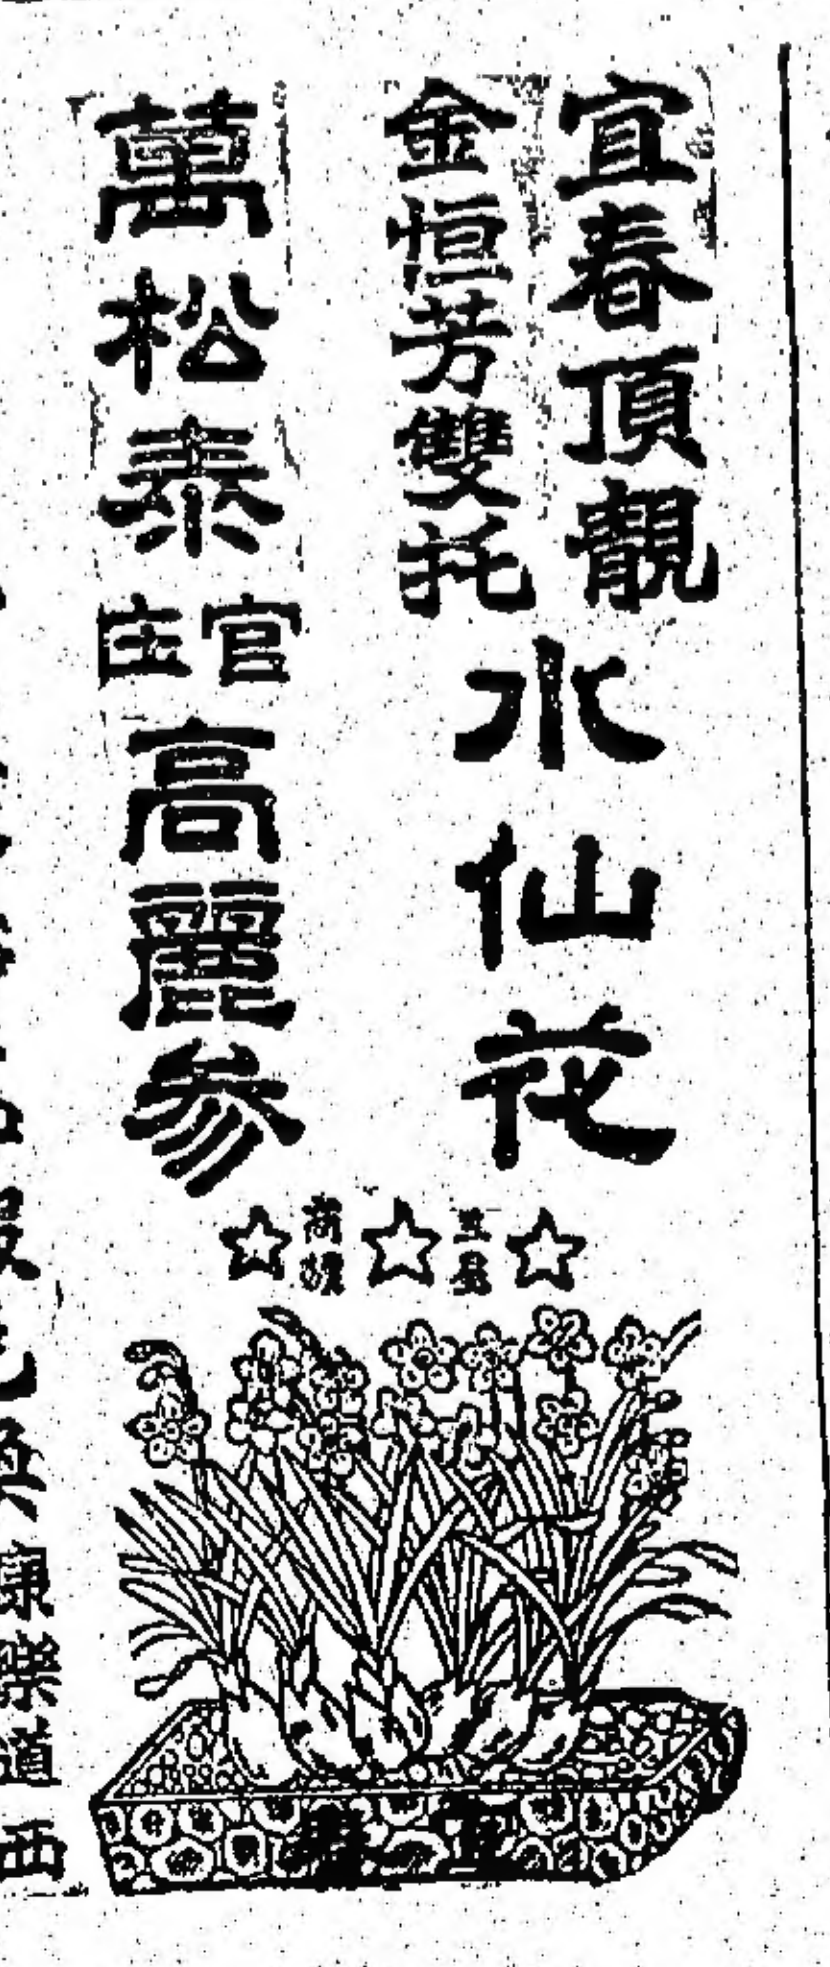 宜春頂靚
金恒芳雙托
水仙花
萬松泰
官庄
高麗參
商標
康樂道西